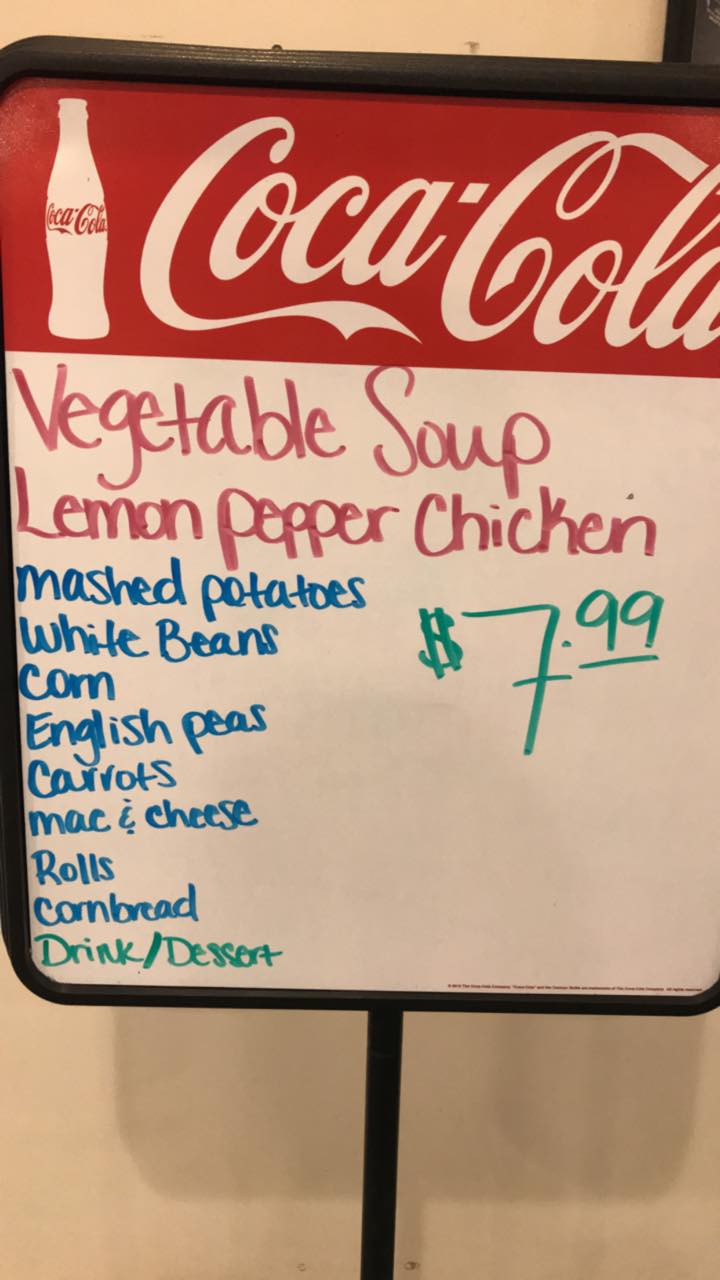 Coca-Cola
Coca-Cola
Vegetable Soup
Lemon pepper Chicken
mashed potatoes
$7.99
White Beans
Corn
English peas
Carrots
mac & cheese
Rolls
cornbread
Drink/Dessert